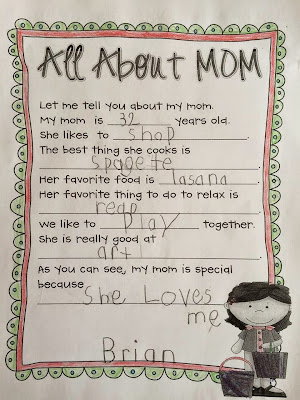 All About MOM
Let me tell you about my mom.
My mom is 32 years old.
She likes to shop.
The best thing she cooks is
spagete.
Her favorite food is lasana.
Her favorite thing to do to relax is
read.
We like to play together.
She is really good at
art.
As you can see, my mom is special
because she Loves
me
Brian